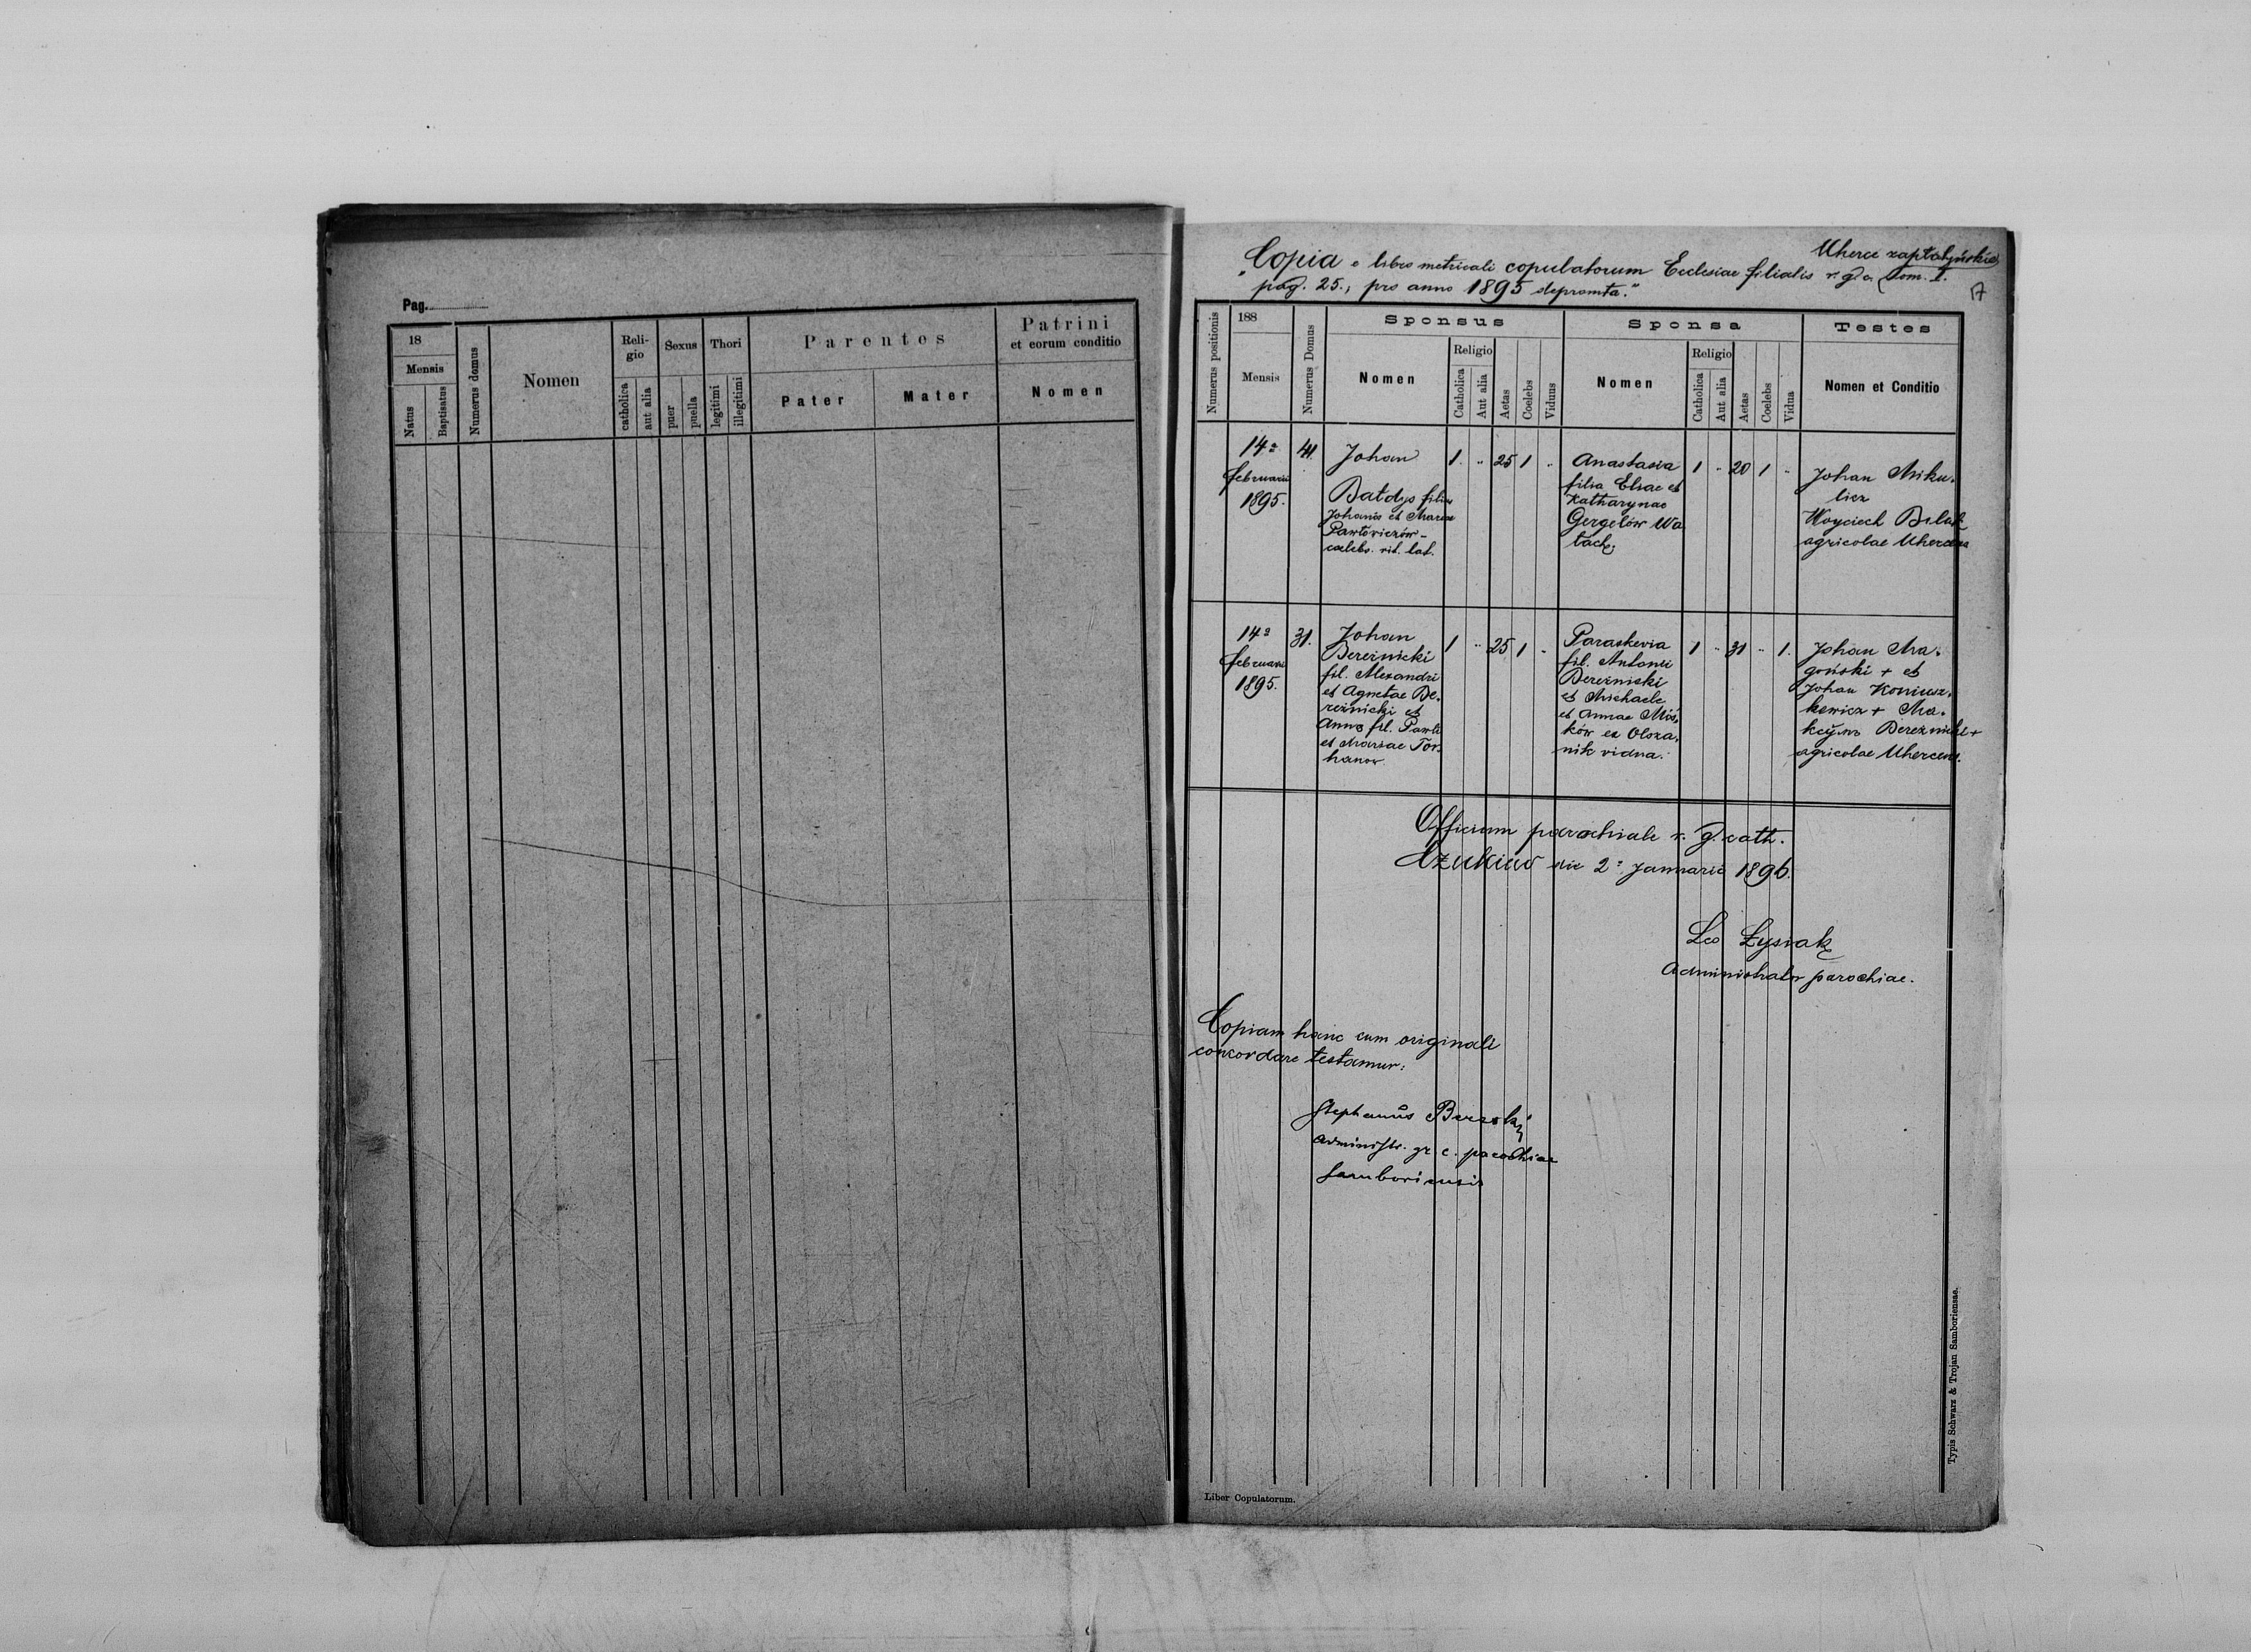 Pag.
18
Mensis
Natus
Baptisatus
Numerus domus
Nomen
Reli-
gio
catholica
aut alia
Sexus
puer
puella
Thori
legitimi
illegitimi
Parentes
Pater
Mater
Patrini
et eorum conditio
Nomen
Uherce zapłatyńskie
"Copia e libro metricali copulatorum Ecclesiae filialis r. g. c. Tom. I.
pag. 25., pro anno 1895 depromta."
17
Numerus positionis
188
Mensis
Numerus Domus
Sponsus
Nomen
Religio
Catholica
Aut alia
Aetas
Coelebs
Viduus
Sponsa
Nomen
Religio
Catholica
Aut alia
Aetas
Coelebs
Vidua
Testes
Nomen et Conditio
14a
februarii
1895.
41.
Johan
Bałdys filius
Johanis et Mariae
Pawłowiczów -
caelebs. rit. lat.
1. " 25 1 "
Anastasia
filia Eliae et
Katharynae
Gergelów Wa
tach;
1 " 20 1 "
Johan Miku-
licz
Woyciech
agricolae
14a
februarii
1895.
31.
Johan
Bereżnicki
fil. Alexandri
et Agnetae Be-
reżnicki et
Anna fil. Pawli
et Mariae Tor-
hanow
1 " 25 1 "
Paraskevia
fil. Antonii
Bereżnicki
et Michaele
et Annae
ków ex
nik vidua.
1 " 31 " 1.
Johan Ma-
goński + et
Johan Koniusz-
kewicz + Ma-
Bereżnicki +
agricolae Uhercens.
Officium parochiale r. g. cath.
die 2a Januarii 1896.
Leo Łysiak
Administrator parochiae.
Copiam hanc cum originali
concordare testamur:
Stephanus
administr. gr. c. parochiae
Samboriensis
Liber Copulatorum.
Typis Schwarz & Trojan Samboriensae.